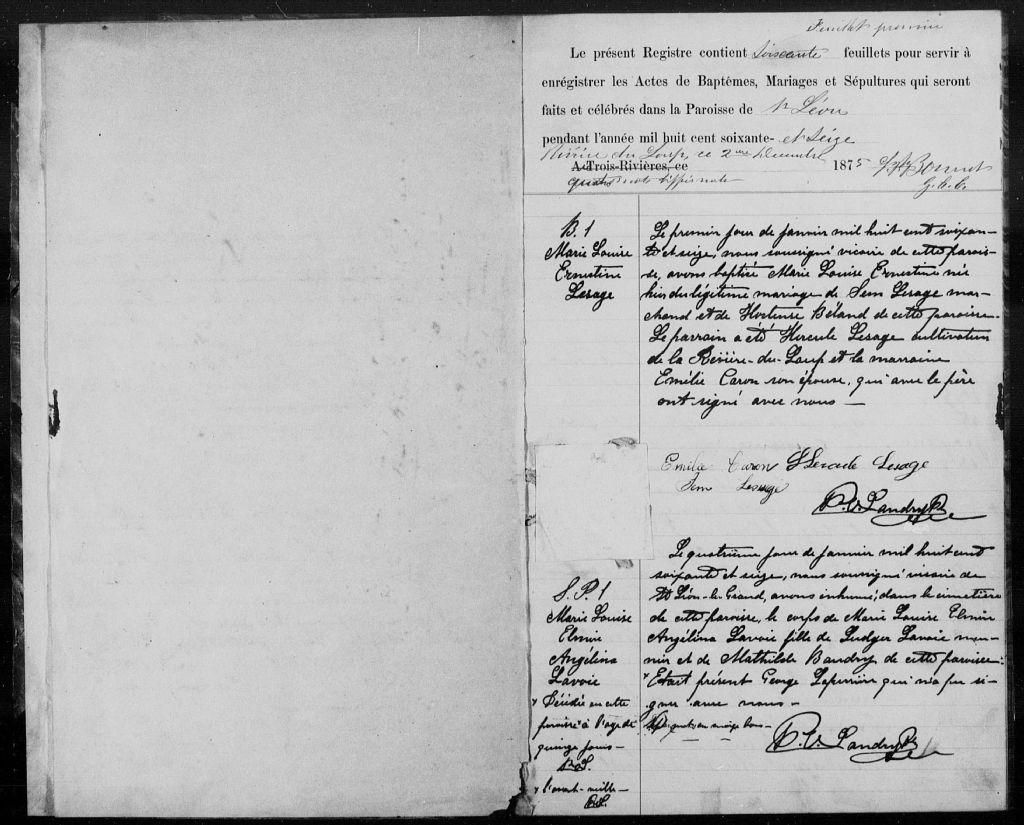 Feuillet premier
Le présent Registre contient soixante feuillets pour servir à
enrégistrer les Actes de Baptêmes, Mariages et Sépultures qui seront
faits et célébrés dans la Paroisse de St Léon
pendant l'année mil huit cent soixante- et seize
Rivière du Loup, ce 2me Decembre
A Trois-Rivières, ce 1875
quatre mots
B. 1
Marie Louise
Ernestine
Lesage
Le premier jour de janvier mil huit cent soixan-
te et seize, nous soussigné vicaire de cette parois-
se, avons baptisé Marie Louise Ernestine née
hier du légitime mariage de Sem Lesage mar-
chand et de Hortense Béland de cette paroisse.
Le parrain a été Hercule Lesage cultivateur
de la Rivière-du-Loup et la marraine
Emélie Caron son épouse, qui avec le père
ont signé avec nous —
Emélie Caron Hercule Lesage
Sem Lesage
Landry Ptre
S. P. 1
Marie Louise
Elmire
Angélina
Lavoie
Le quatrième jour de janvier mil huit cent
soixante et seize, nous soussigné vicaire de
St Léon-le-Grand, avons inhumé, dans le cimetière
de cette paroisse, le corps de Marie Louise Elmire
Angélina Lavoie fille de Ludger Lavoie meu-
nier et de Mathilde Baudry de cette paroisse.
Etait présent George qui n'a pu si-
gner avec nous —
Landry Ptre
+ Décédée en cette
paroisse à l'age de
quinze jours —
+ l'avant-veille —